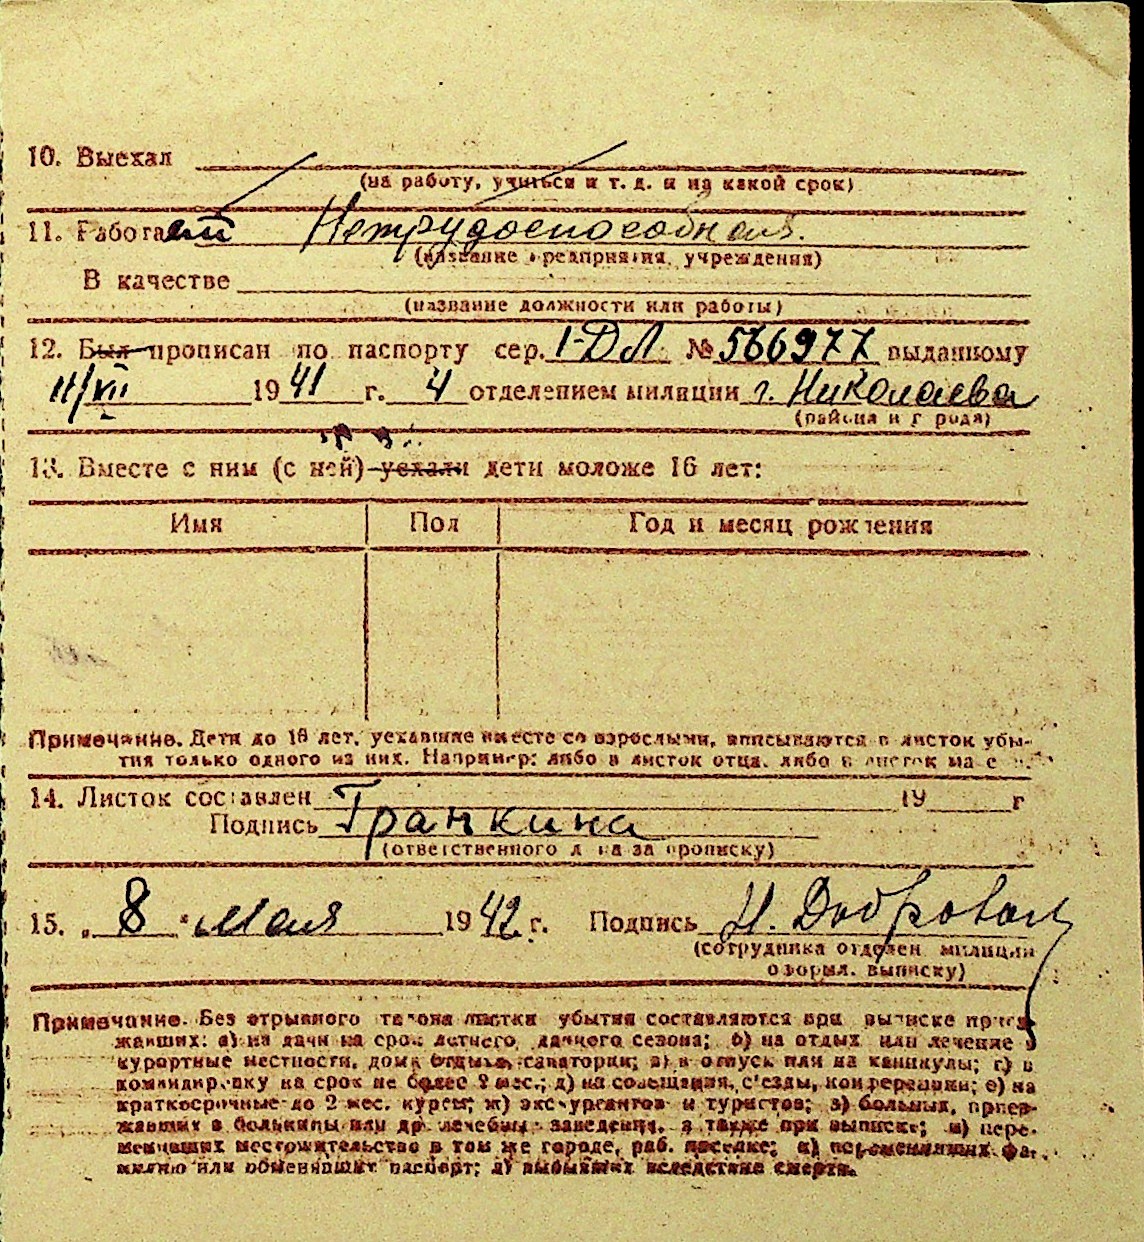 10. Выехал
(на работу, учиться и т. д. и на какой срок)
11. Работает Нетрудоспособная.
(название предприятия, учреждения)
В качестве
(название должности или работы)
12. Был прописан по паспорту сер. 1-ДЛ № 566977 выданному
11/VII 1941 г. 4 отделением милиции г. Николаева
(района и города)
13. Вместе с ним (с ней) уехали дети моложе 16 лет:
Имя Пол Год и месяц рождения
Примечание. Дети до 16 лет, уехавшие вместе со взрослыми, вписываются в листок убы-
тия только одного из них. Например: либо в листок отца, либо в листок
14. Листок составлен 19 г
Подпись Гранкина
(ответственного за прописку)
15. „ 8 " Мая 1942 г. Подпись Н. Добровол
(сотрудника отделен милиции
оформл. выписку)
Примечание. Без отрывного талона листки убытия составляются при выписке приез-
жавших: а) на дачи на срок летнего, дачного сезона; б) на отдых или лечение в
курортные местности, дома отдыха, санатории; в) в отпуск или на каникулы; г) в
командировку на срок не более 2 мес.; д) на совещания, с'езды, конференции; е) на
краткосрочные до 2 мес. курсы; ж) экскурсантов и туристов; з) больных, приез-
жавших в больницы или др. лечебные заведения, а также при выписке; и) пере-
менивших местожительство в том же городе, раб. поселке; к) переменивших фа-
милию или обменявших паспорт; л) выбывших вследствие смерти.